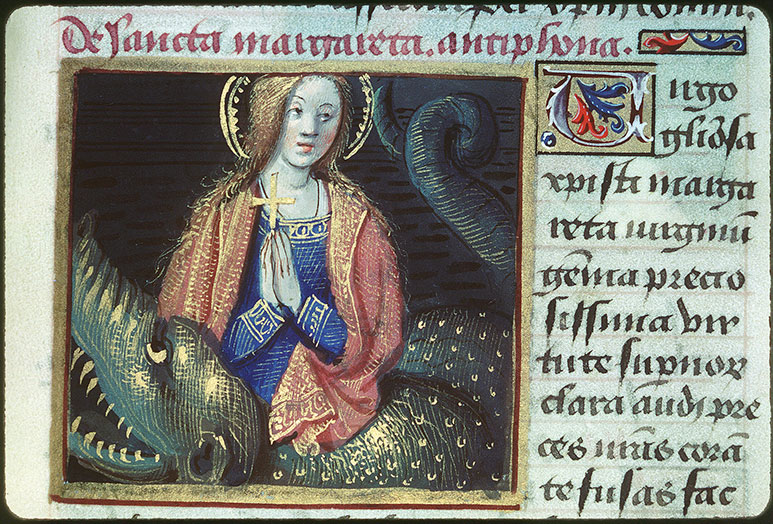 De sancta margareta. antiphona.
Uirgo
gliosa
xpisti marga
reta uirginū
gēma precio
sissima vir
tute supnor
clara audi pre
ces nr̄as corā
te fusas fac